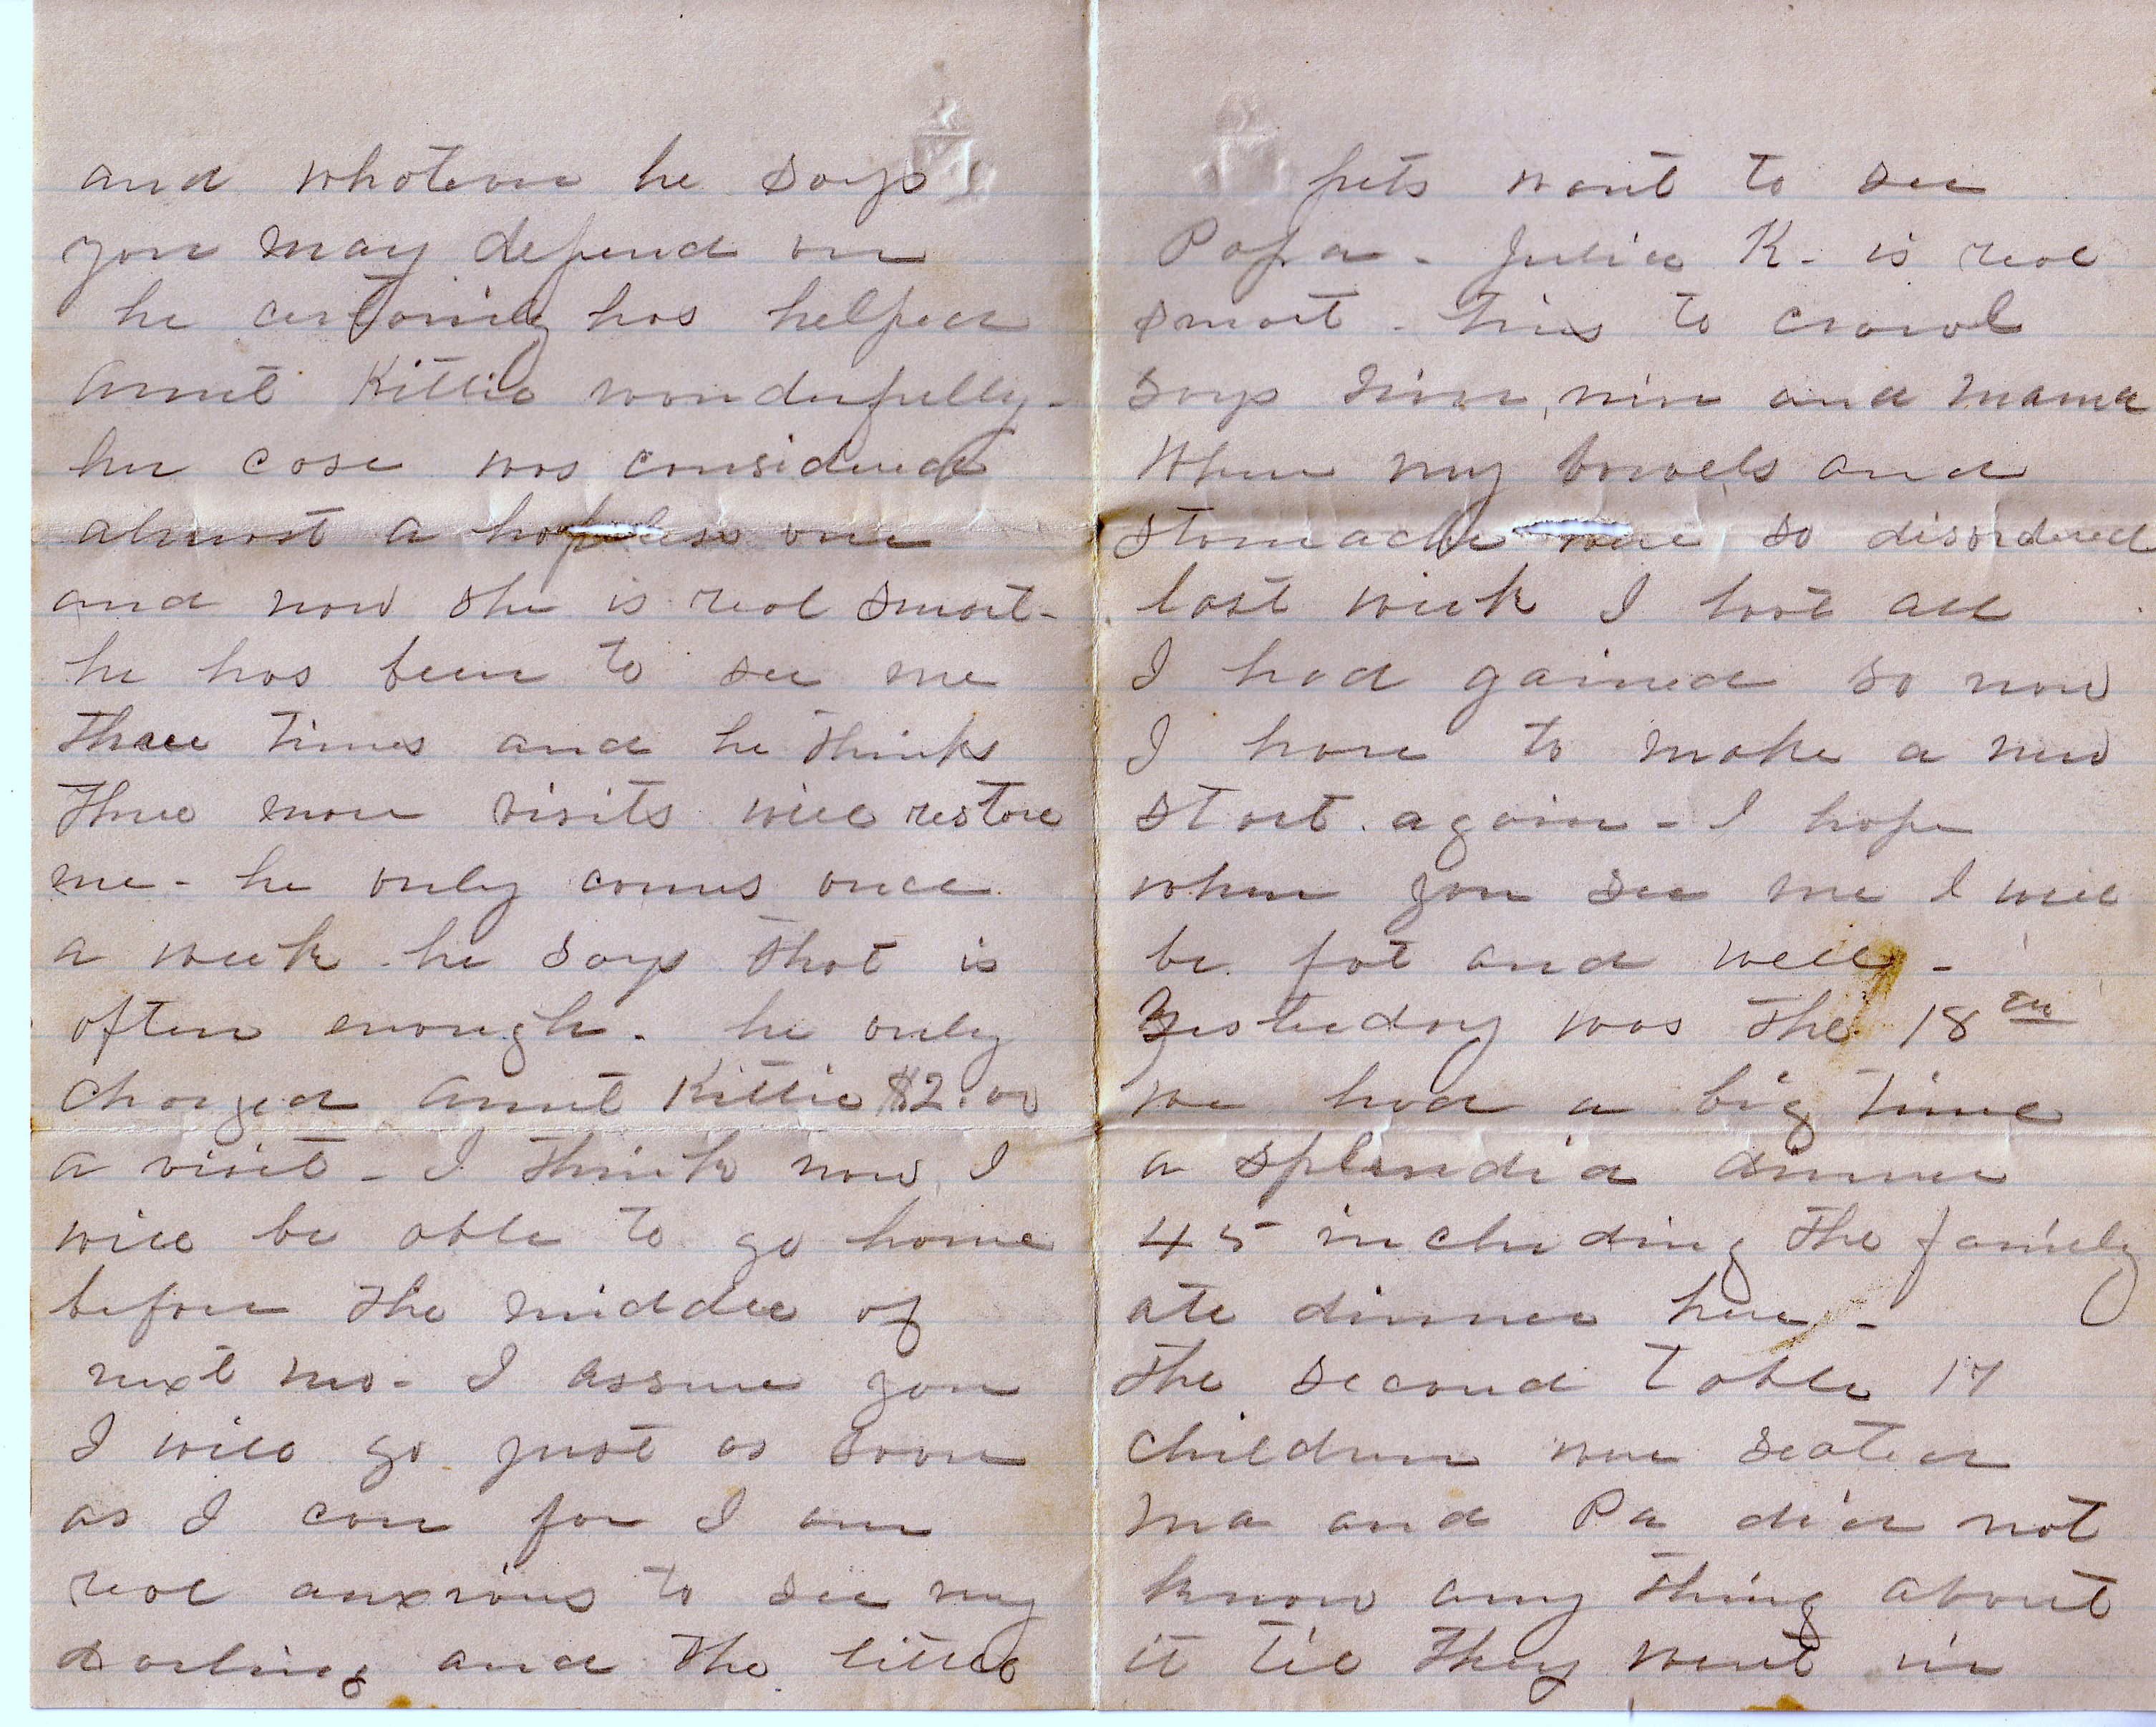 and whatever he says
you may depend on
he certainly has helped
Aunt Kittie wonderfully -
her case was considered
almost a hopeless one
and now she is real smart -
he has been to see me
three times and he thinks
three more visits will restore
me - he only comes once
a week he says that is
often enough - he only
charged Aunt Kittie $2.00
a visit - I think now I
will be able to go home
before the middle of
next mo - I assure you
I will go just as soon
as I can for I am
real anxious to see my
darling and the little
pets want to see
Papa - Julia K - is real
smart - tries to crawl
says nin and mama
When my bowels and
stomache were so disordered
last week I lost all
I had gained so now
I have to make a new
start again - I hope
when you see me I will
be fat and well -
Yesterday was the 18th
we had a big time
a splendid dinner
45 including the family
ate dinner here -
the second table 17
children were seated
Ma and Pa did not
know any thing about
it til they went in